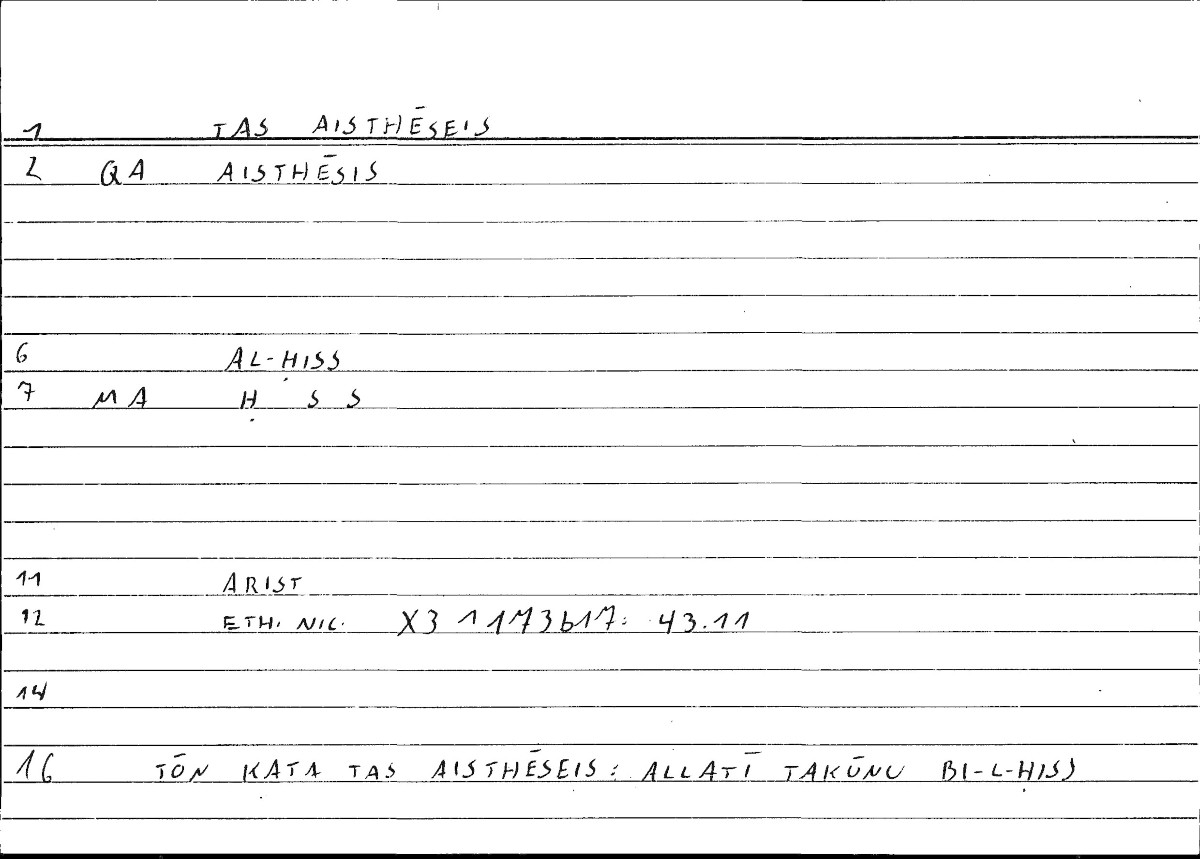 1 TAS AISTHĒSEIS
2 QA AISTHĒSIS
6 AL-ḤISS
7 MA Ḥ S S
11 ARIST
12 ETH. NIC. X3 1173b17: 43.11
14
16 TŌN KATA TAS AISTHĒSEIS: ALLATĪ TAKŪNU BI-L-ḤISS